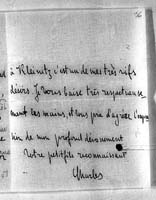 à Kleinitz c'est un de mes très vifs
désirs. Je vous baise très respectueuse-
ment les mains, et vous prie d'agréer l'expres
sion de mon profond dévouement
Votre petit fils reconnaissant
Charles